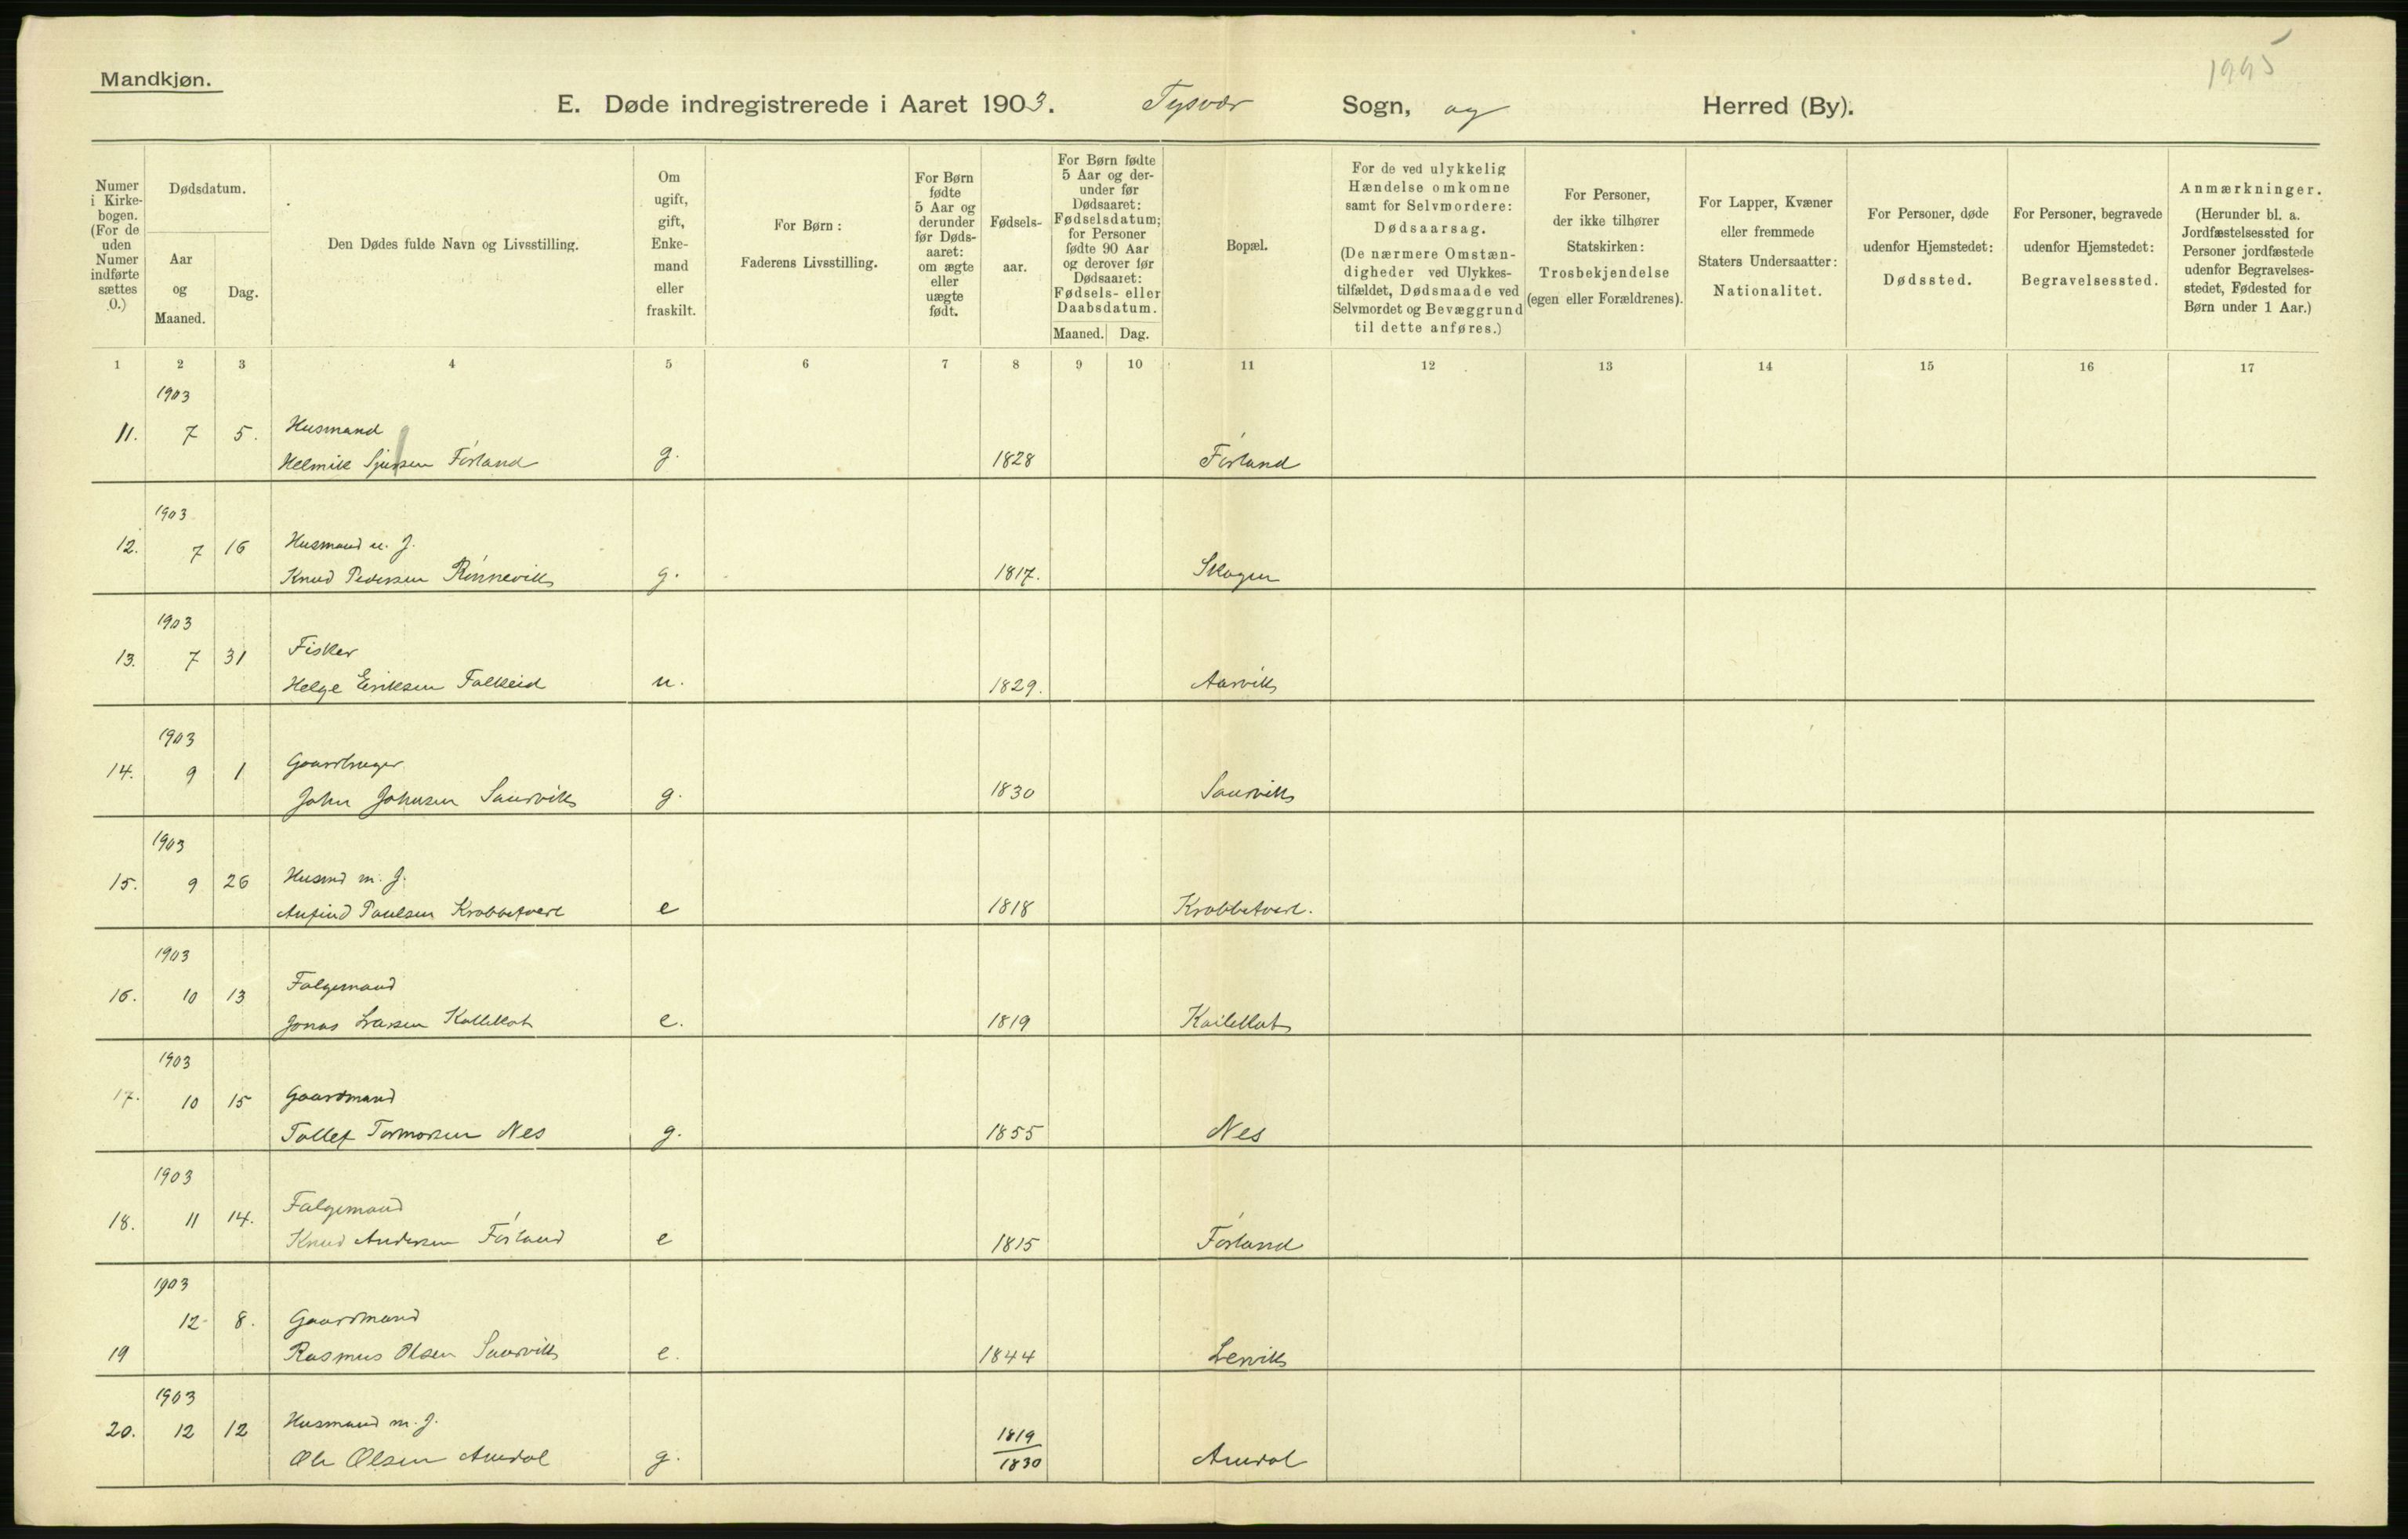 1995
Mandkjøn.
E. Døde indregistrerede i Aaret 1903. Tysvær Sogn, og Herred (By).
Numer i Kirke-bogen. (For de uden Numer indførte sættes 0.)
Dødsdatum.
Aar og Maaned.
Dag.
Den Dødes fulde Navn og Livsstilling.
Om ugift, gift, Enke-mand eller fraskilt.
For Børn:
Faderens Livsstilling.
For Børn fødte 5 Aar og derunder før Døds-aaret: om ægte eller uægte født.
Fødsels-aar.
For Børn fødte 5 Aar og der-under før Dødsaaret: Fødselsdatum; for Personer fødte 90 Aar og derover før Dødsaaret: Fødsels- eller Daabsdatum.
Maaned. Dag.
Bopæl.
For de ved ulykkelig Hændelse omkomne samt for Selvmordere: Dødsaarsag. (De nærmere Omstæn-digheder ved Ulykkes-tilfældet, Dødsmaade ved Selvmordet og Bevæggrund til dette anføres.)
For Personer, der ikke tilhører Statskirken: Trosbekjendelse (egen eller Forældrenes).
For Lapper, Kvæner eller fremmede Staters Undersaatter: Nationalitet.
For Personer, døde udenfor Hjemstedet: Dødssted.
For Personer, begravede udenfor Hjemstedet: Begravelsessted.
Anmærkninger. (Herunder bl. a. Jordfæstelsessted for Personer jordfæstede udenfor Begravelses-stedet, Fødested for Børn under 1 Aar.)
1 2 3 4 5 6 7 8 9 10 11 12 13 14 15 16 17
1903
11. 7 5. Husmand
Helmik Sjursen Førland g. 1828 Førland
1903
12. 7 16 Husmand u. J.
Knud Pedersen Rønnevik g. 1817. Skogen
1903
13. 7 31 Fisker
Helge Eriksen Falkeid u. 1829. Aarvik
1903
14. 9 1 Gaardbruger
John Johnsen Saurvik g. 1830 Saurvik
1903
15. 9 26 Husmd m. J.
Anfind Paulsen Krabbetveit e 1818 Krabbetveit.
1903
16. 10 13 Folgemand
Jonas Larsen Kallekot e. 1819 Kailekot
1903
17. 10 15 Gaardmand
Tollef Tormorsen Nes g. 1855 Nes
1903
18. 11 14. Folgemand
Knud Andersen Førland e 1815 Førland
1903
12 8. Gaardmand
19 Rasmus Olsen Saurvik e. 1844 Lervik
1903
20. 12 12 Husmand m. J. 1819
Ole Olsen Amdal g. 1830 Amdal